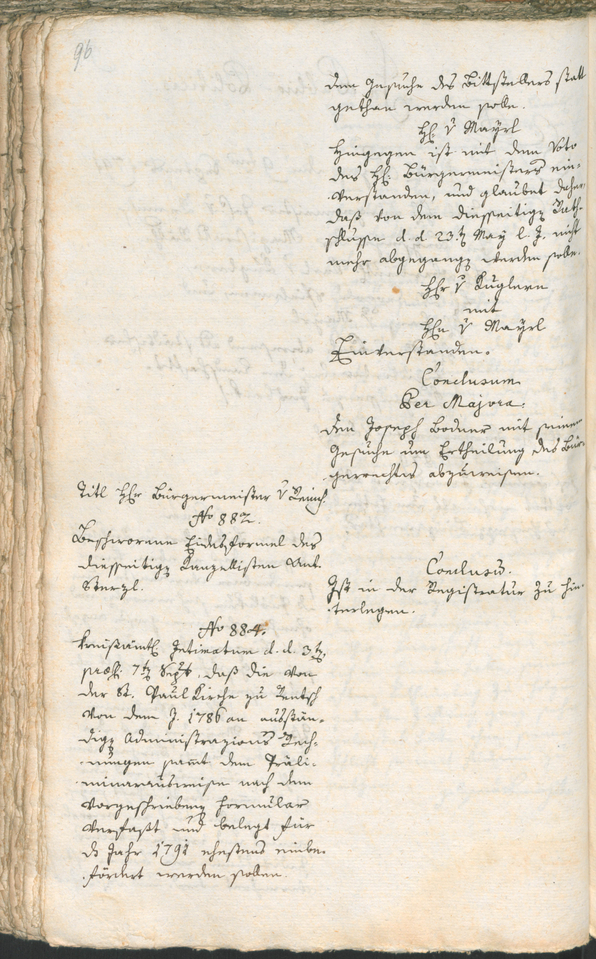 96
dem Gesuche des Bittstellers statt
gethan werden solle.
H: v Mayrl
Hingegen ist mit dem Voto
des H: Bürgermeisters ein-
verstanden, und glaubet daher,
daß von dem diesseitigen Rath-
schlusse d. d. 23.t May l. J. nicht
mehr abgegangen werden solle.
Hr v Kuglern
mit
Hn v Mayrl
Einverstanden.
Conclusum
Per Majora.
dem Joseph Bodner mit seinem
Gesuche um Ertheilung des Bür-
gerrechtes abzuweisen.
Titl Hr Bürgermeister v
No 882.
Beschworene Eidesformel des
diesseitigen Kanzellisten Ant.
Sterzl.
Conclusũ.
Ist in der Registratur zu hin-
terlegen.
No 884.
Kreisämtl. Intimatum d. d. 3t,
præs: 7t Sept. daß die von
der St. Paul Kirche zu
von dem J. 1786 an ausstän-
dige Administrazions Rech-
nungen samt dem Präli-
minarausweise nach dem
vorgeschriebenen Formular
verfaßt und belegt für
ds Jahr 1791 ehestens einbe-
fördert werden sollen.